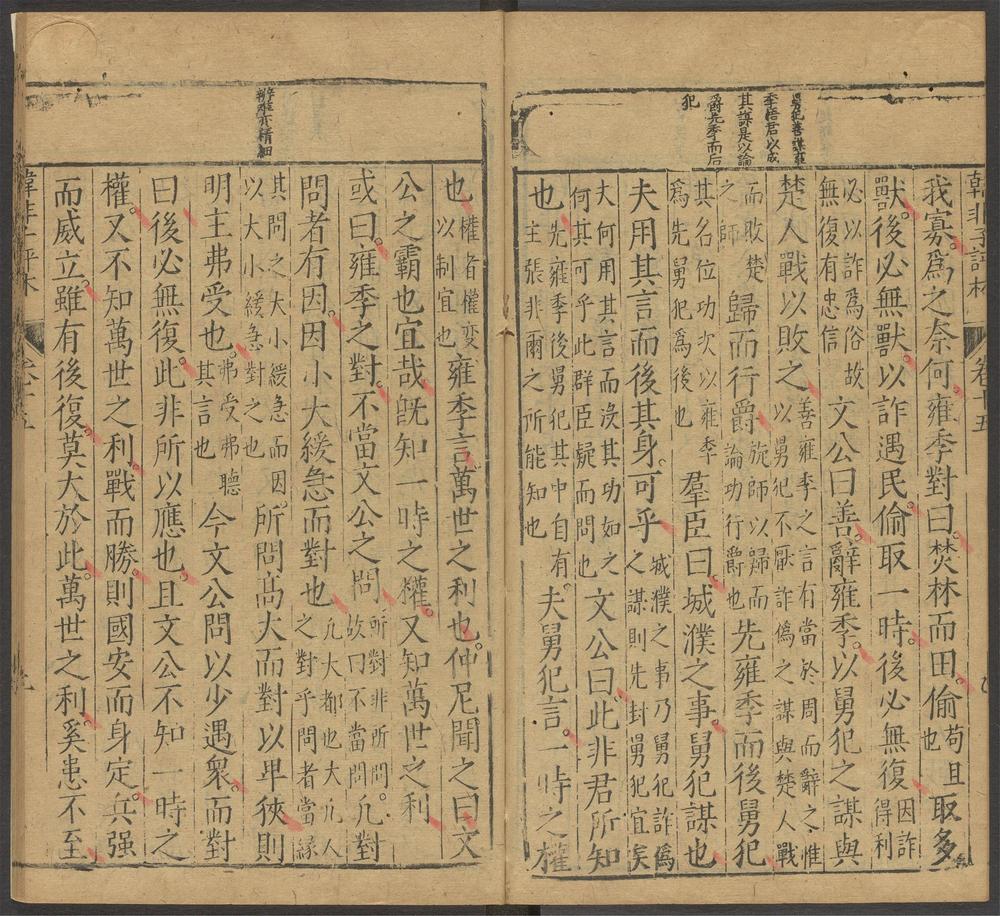 韓非子評林 卷十五
舅犯善謀雍
季悟君以成
其謀是以論
爵先季而后
犯
我寡爲之奈何雍季對曰焚林而田偷苟且也取多
獸後必無獸以詐遇民偷取一時後必無復因詐得利
必以詐爲俗故無復有忠信文公曰善辭雍季以舅犯之謀與
楚人戰以敗之善雍季之言有當於周而辭之惟以舅犯不厭詐僞之謀與楚人戰
而敗楚之師歸而行爵旋師以歸而論功行爵也先雍季而後舅犯
其名位功次以雍季爲先舅犯爲後也羣臣曰城濮之事舅犯謀也
夫用其言而後其身可乎城濮之事乃舅犯詐僞之謀則先封舅犯宜矣
夫何用其言而没其功如之何其可乎此群臣疑而問也文公曰此非君所知
也先雍季後舅犯其中自有主張非爾之所能知也夫舅犯言一時之權
辨難亦精細
也權者權变以制宜也雍季言萬世之利也仲尼聞之曰文
公之霸也宜哉旣知一時之權又知萬世之利
或曰雍季之對不當文公之問所對非所問故曰不當問凡對
問者有因因小大緩急而對也凡大都也大凡人之對乎問者當緣
其問之大小緩急而因以大小緩急對之也所問高大而對以卑狹則
明主弗受也弗受弗聽其言也今文公問以少遇衆而對
曰後必無復此非所以應也且文公不知一時之
權又不知萬世之利戰而勝則國安而身定兵强
而威立雖有後復莫大於此萬世之利奚患不至